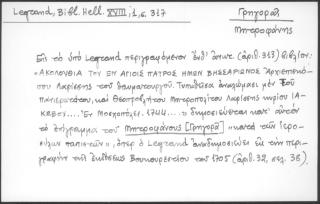 Legrand, Bibl. Hell. XVIII, 1, σ. 317
Γρηγορᾶς
Μητροφάνης
Εἰς τὸ ὑπὸ Legrand περιγραφόμενον ἐνθ' ἀνωτ. (ἀριθ. 313) βιβλίον:
"ΑΚΟΛΟΥΘΙΑ ΤΟΥ ΕΝ ΑΓΙΟΙΣ ΠΑΤΡΟΣ ΗΜΩΝ ΒΗΣΣΑΡΙΩΝΟΣ Ἀρχιεπισκό-
που Λαρίσσης τοῦ θαυματουργοῦ. Τυπωθεῖσα ἀναλώμασι μὲν τοῦ
πανιερωτάτου, καὶ Θεοπροβλήτου Μητροπολίτου Λαρίσσης κυρίου ΙΑ-
ΚΩΒΟΥ.... Ἐν Μοσχοπόλει. 1744.... " δημοσιεύεται κατ'
τὸ ἐπίγραμμα τοῦ Μητροφάνους [Γρηγορᾶ] "κατὰ τῶν ἱερο-
σύλων παπιστῶν", ὅπερ ὁ Legrand ἀναδημοσιεύει ἐν τῇ περι-
γραφῇ τῆς ἐκδόσεως Βουκουρεστίου τοῦ 1705 (ἀριθ. 32, σελ. 38).